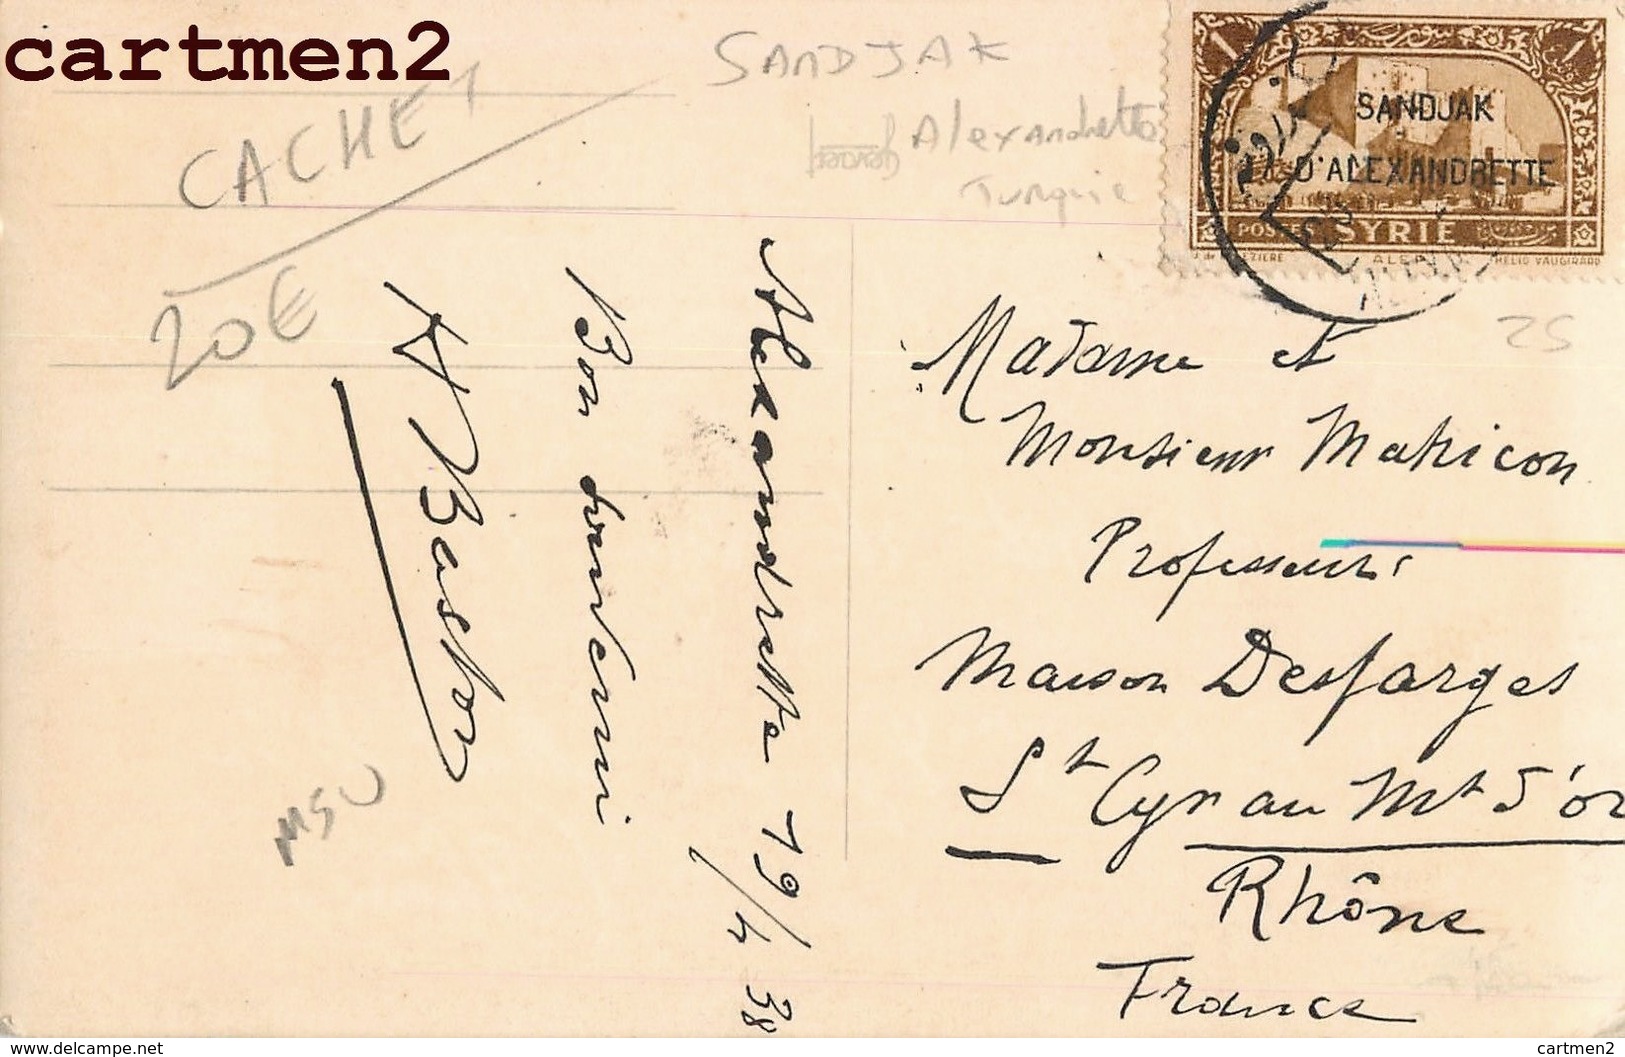 cartmen2
CACHET
20€
SANDJAK
Alexandrette
Turquie
Gevaert
SANDJAK
D'ALEXANDRETTE
POSTES SYRIE
HELIO VAUGIRARD
25
Alexandrette 19/4 38
Bon souvenir
Baston
MSU
Madame et
Monsieur Matricon
Professeurs
Maison Desfarges
St Cyr au Mt d'or
Rhône
France
https://www.delcampe.net
cartmen2